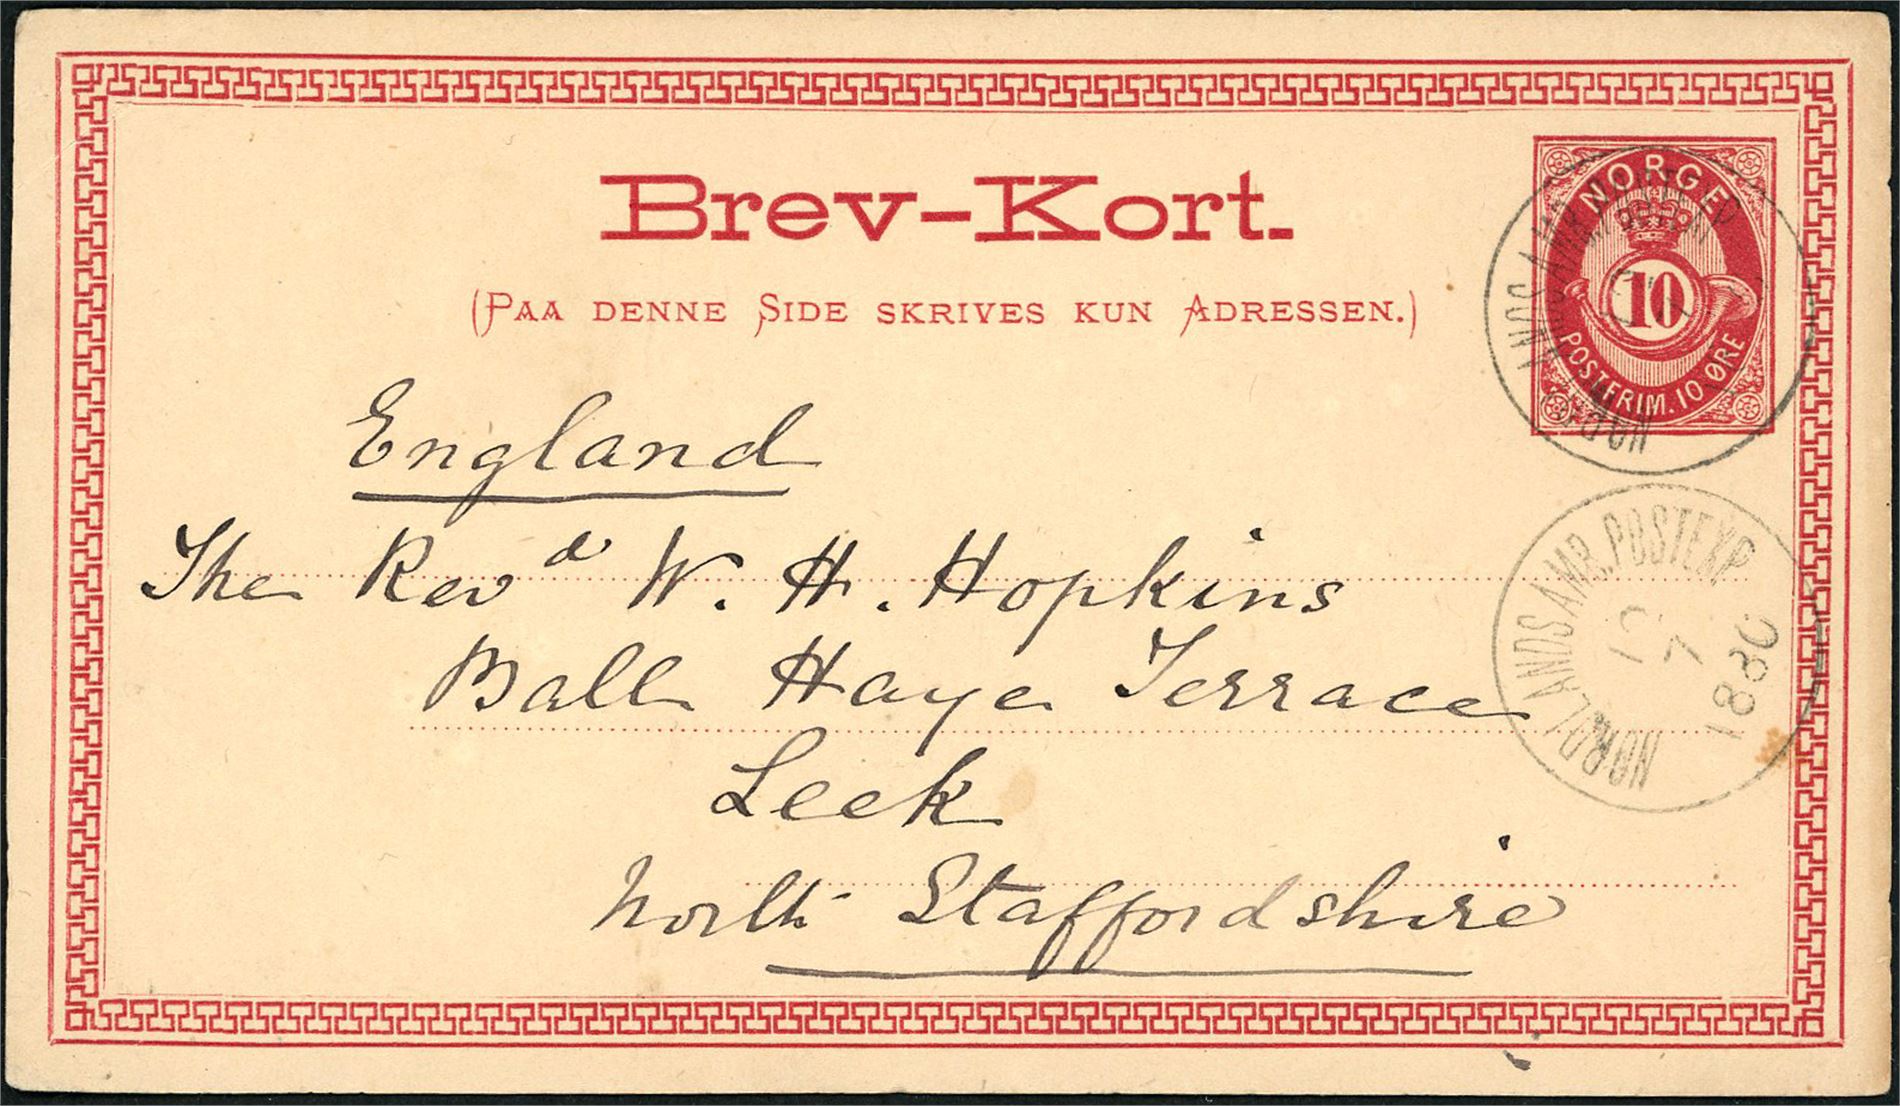 Brev-Kort.
(PAA DENNE SIDE SKRIVES KUN ADRESSEN.)
NORGE
10
POSTFRIM. 10 ØRE
England
The Revd W. H. Hopkins
Ball Haye Terrace
Leek
North Staffordshire
NORDLANDS AMR. POSTEXP
7
1880